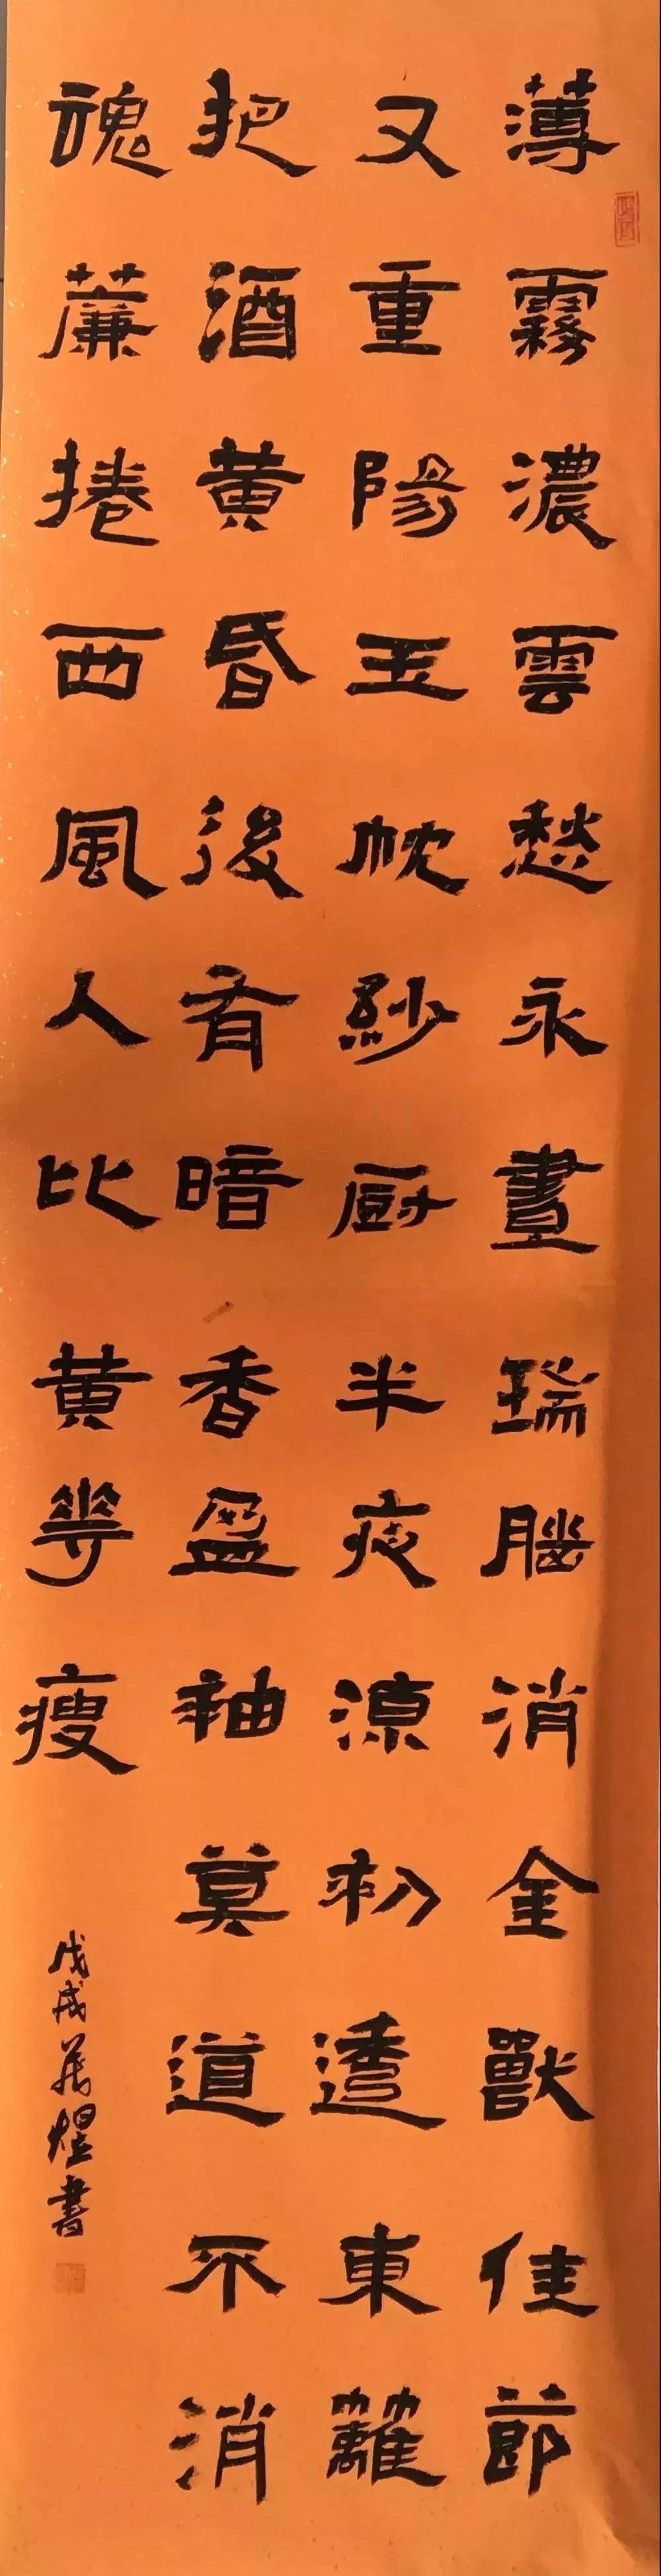 薄霧濃雲愁永晝瑞腦消金獸佳節
又重陽玉枕紗厨半夜涼初透東籬
把酒黄昏後有暗香盈袖莫道不消
魂簾捲西風人比黄華瘦
戊戌煜書